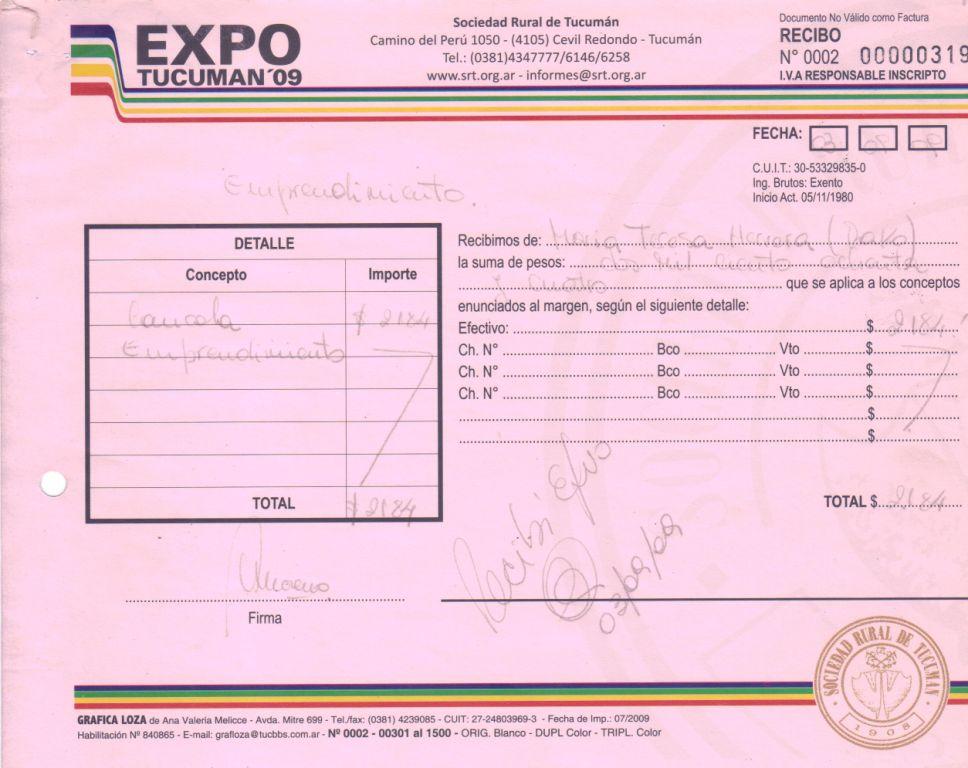 EXPO
TUCUMAN´09
Sociedad Rural de Tucumán
Camino del Perú 1050 - (4105) Cevil Redondo - Tucumán
Tel.: (0381)4347777/6146/6258
www.srt.org.ar - informes@srt.org.ar
Documento No Válido como Factura
RECIBO
N° 0002 00000319
I.V.A RESPONSABLE INSCRIPTO
FECHA: 03 09 09
C.U.I.T.: 30-53329835-0
Ing. Brutos: Exento
Inicio Act. 05/11/1980
Emprendimiento.
DETALLE
Concepto Importe
$ 2184
Emprendimiento
TOTAL $ 2184
Recibimos de: Maria Teresa Herrera
la suma de pesos: dos mil ciento ochenta
y cuatro que se aplica a los conceptos
enunciados al margen, según el siguiente detalle:
Efectivo: $ 2184
Ch. N° Bco Vto $
Ch. N° Bco Vto $
Ch. N° Bco Vto $
$
$
TOTAL $ 2184
Recibi Efvo
03/09/09
Firma
SOCIEDAD RURAL DE TUCUMÁN
1908
GRAFICA LOZA de Ana Valeria Melicce - Avda. Mitre 699 - Tel./fax: (0381) 4239085 - CUIT: 27-24803969-3 - Fecha de Imp.: 07/2009
Habilitación Nº 840865 - E-mail: grafloza@tucbbs.com.ar - Nº 0002 - 00301 al 1500 - ORIG. Blanco - DUPL Color - TRIPL. Color